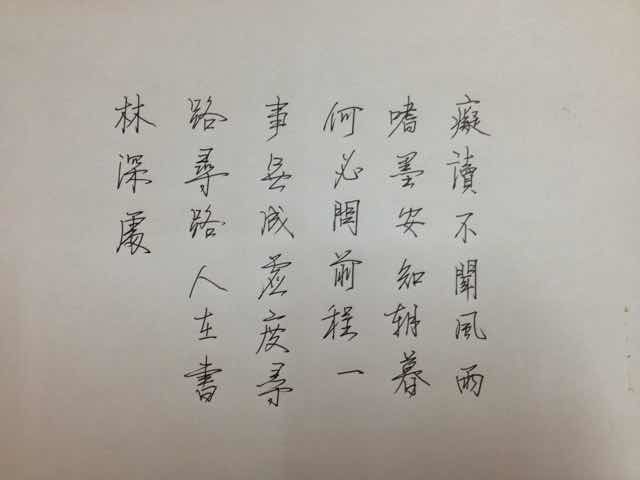 癡讀不聞風雨
嗜墨安知朝暮
何必問前程一
事無成虛度尋
路尋路人在書
林深處